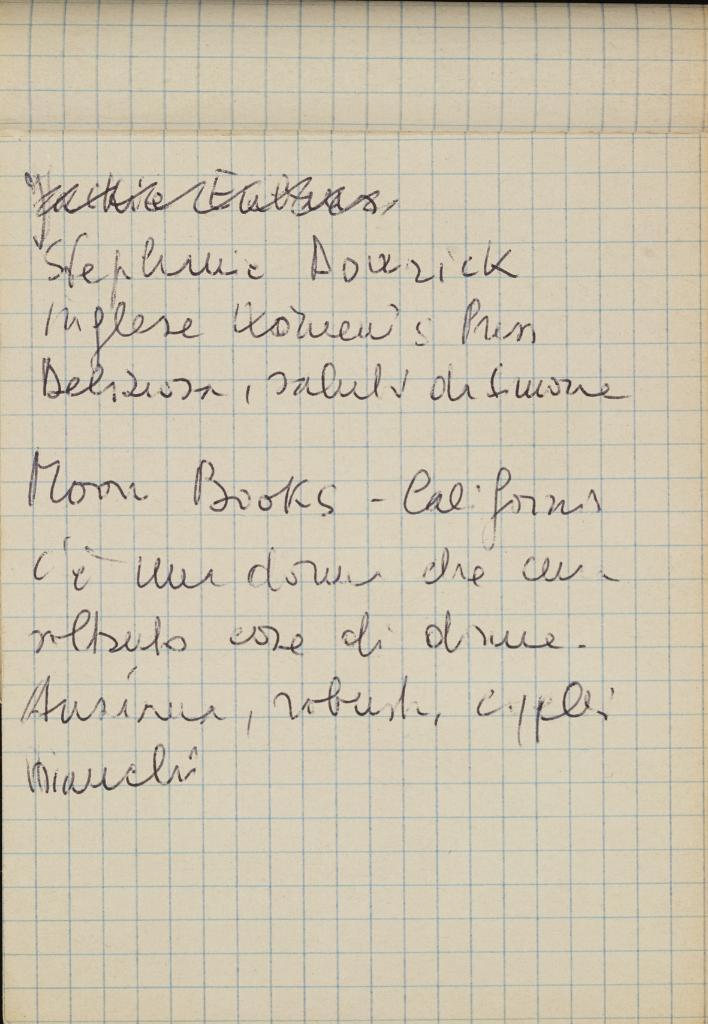 Stephanie Dowrick
Inglese Women's Press
Deliziosa, saluti di Simone
Moon Books - California
C'è una donna che cura
soltanto cose di donne.
Anziana, robusta, capelli
bianchi